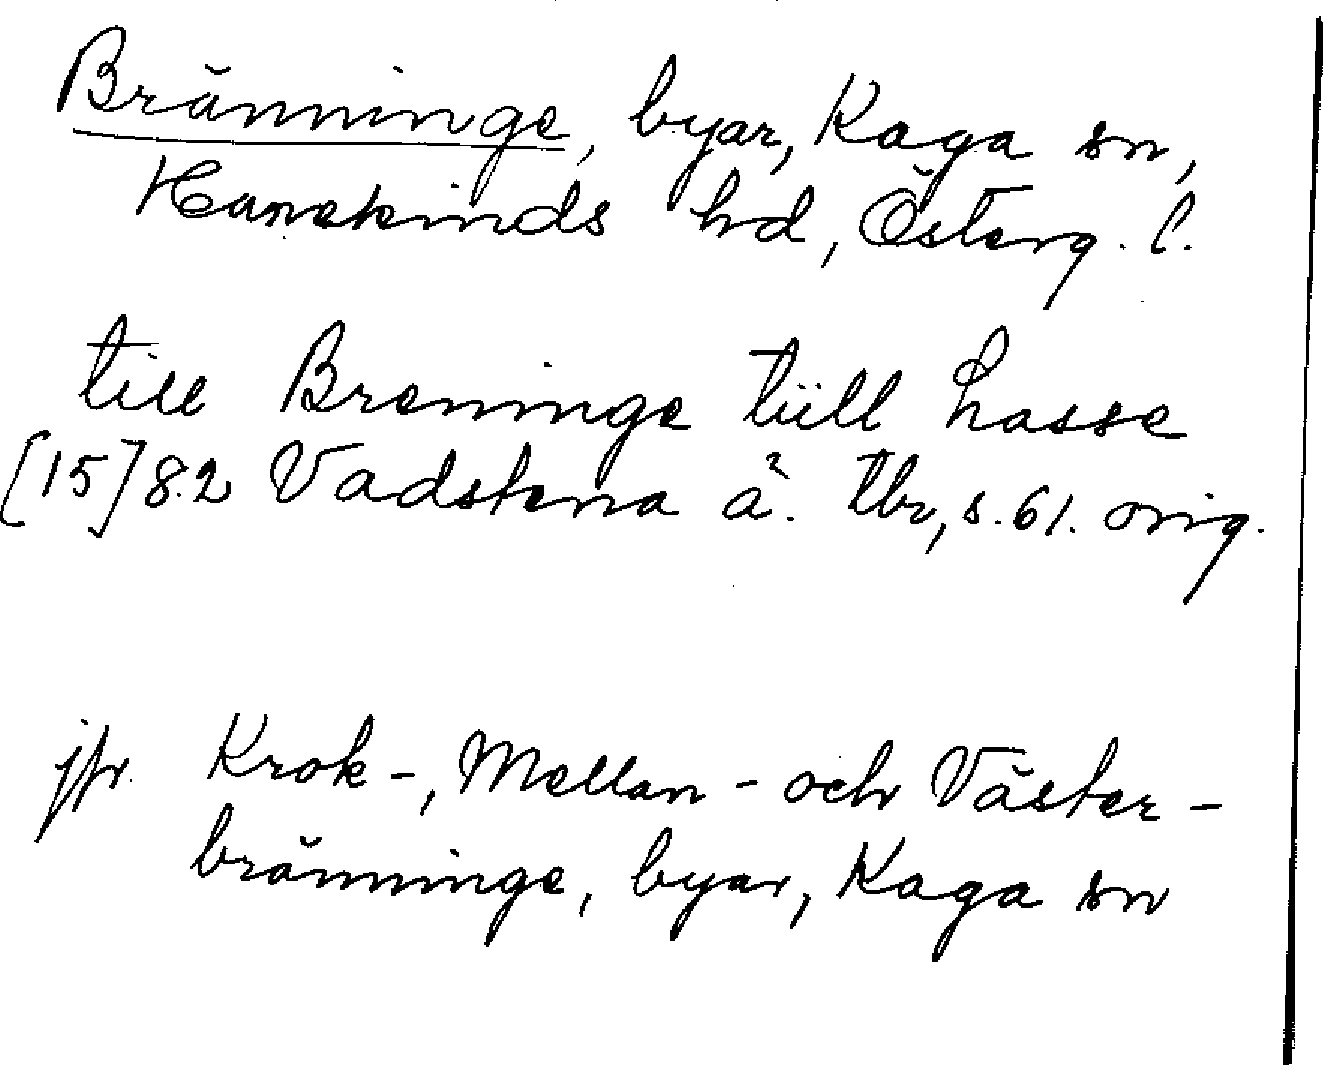 Bränninge, byar, Kaga sn,
Hanekinds hd, Österg. l.
till Breninge tüll Lasse
[15]82 Vadstena ä. tbr, s. 61. orig.
jfr. Krok-, Mellan- och Väster-
bränninge, byar, Kaga sn